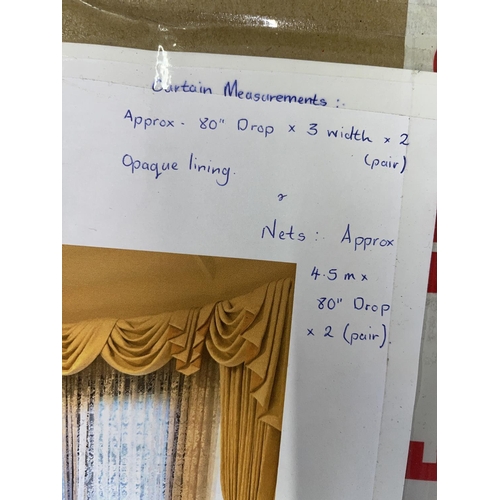 Curtain Measurements :.
Approx - 80" Drop x 3 width x 2
(pair)
Opaque lining.
Nets :. Approx
4.5 m x
80" Drop
x 2 (pair).